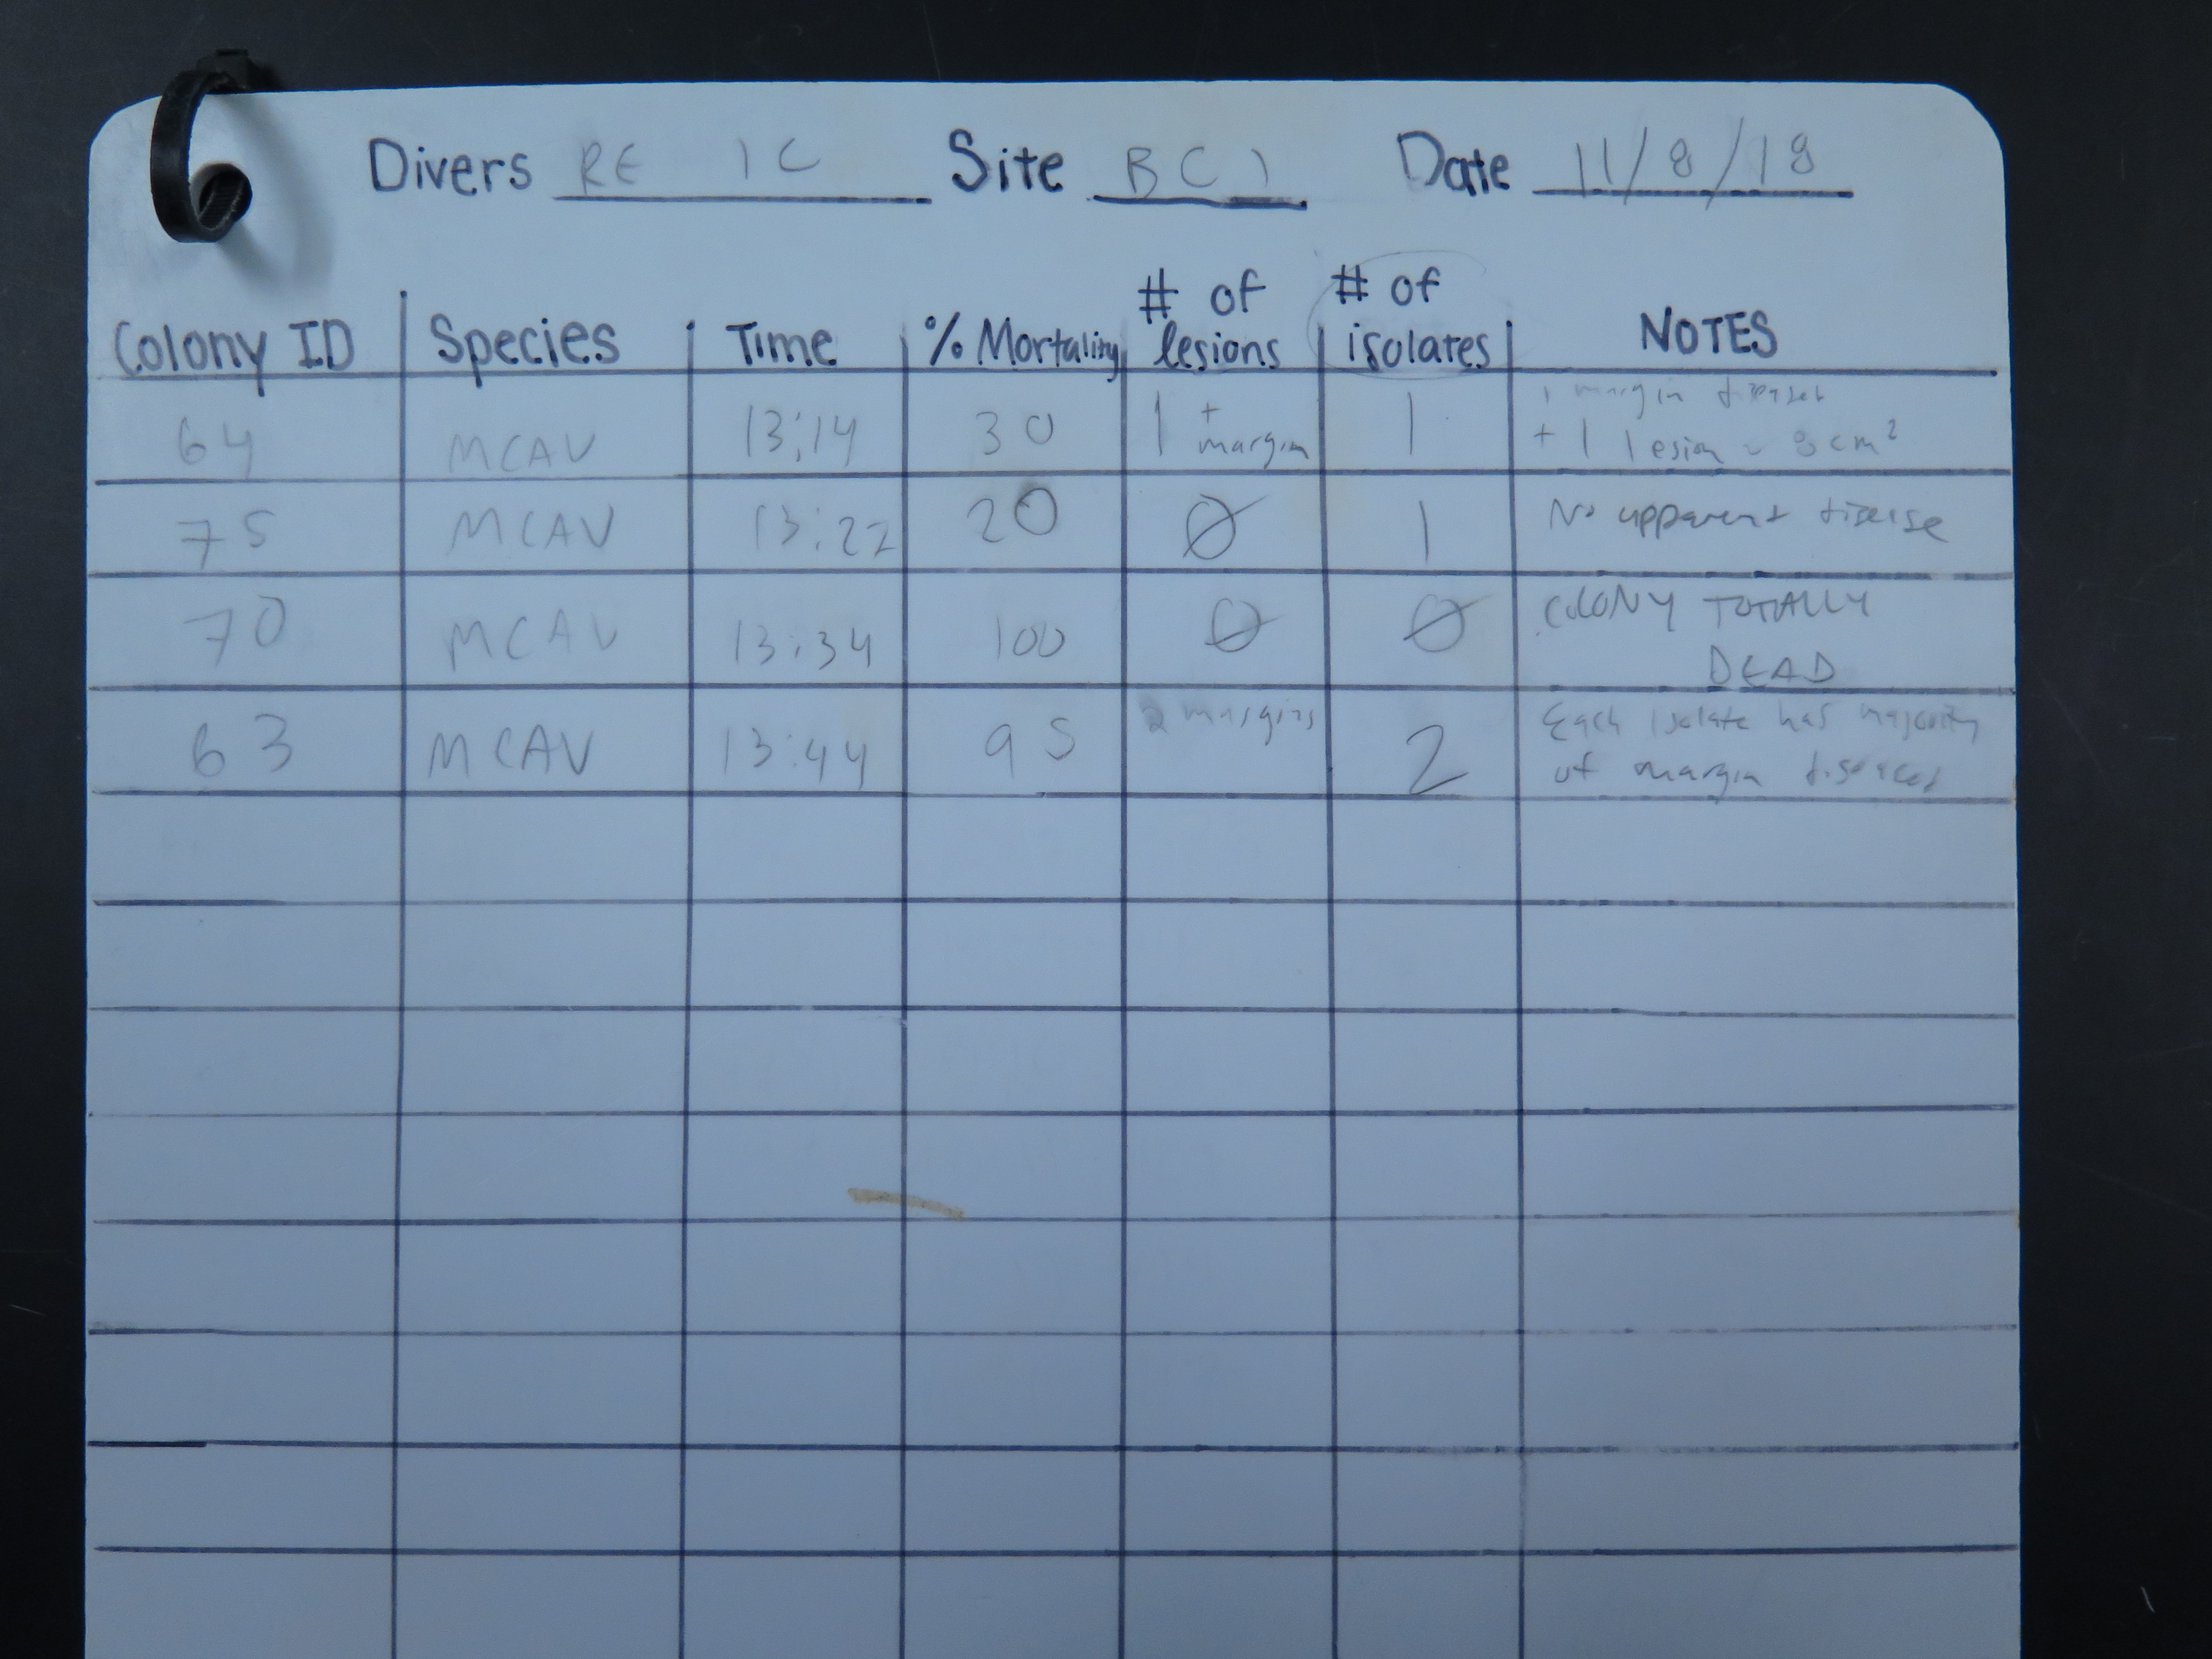 Divers RE IC Site BC1 Date 11/8/18
# of # of
Colony ID Species Time % Mortality lesions isolates NOTES
64 MCAV 13:14 30 1 + margin 1 1 margin diseased
+ 1 lesion ~ 8cm²
75 MCAV 13:22 20 Ø 1 No apparent disease
70 MCAV 13:34 100 Ø Ø COLONY TOTALLY
DEAD
63 MCAV 13:44 95 2 margins 2 Each isolate has majority
of margin diseased